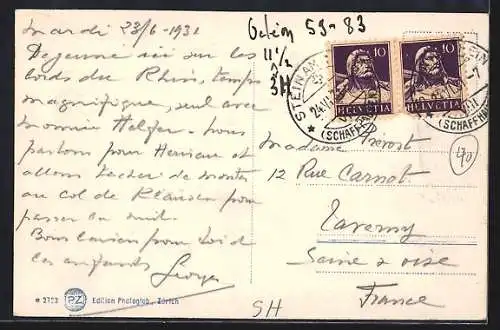 Mardi 23/6-1931
Dejeuner ici sur les
bords du Rhin, temps
magnifique, seul avec
nous
partons pour Herisau et
allons tacher de monter
au col de Klausen pour
passer la nuit.
Bons baisers pour toi et
les enfants
Georges
59-83
11 1/2
3H
STEIN AM
(SCHAFFH
10
HELVETIA
10
HELVETIA
EIN
(SCHAFFH
Madame Prévost
12 Rue Carnot
Taverny
Seine & oise
France
170
* 2723 PZ Edition Photoglob, Zürich
SH